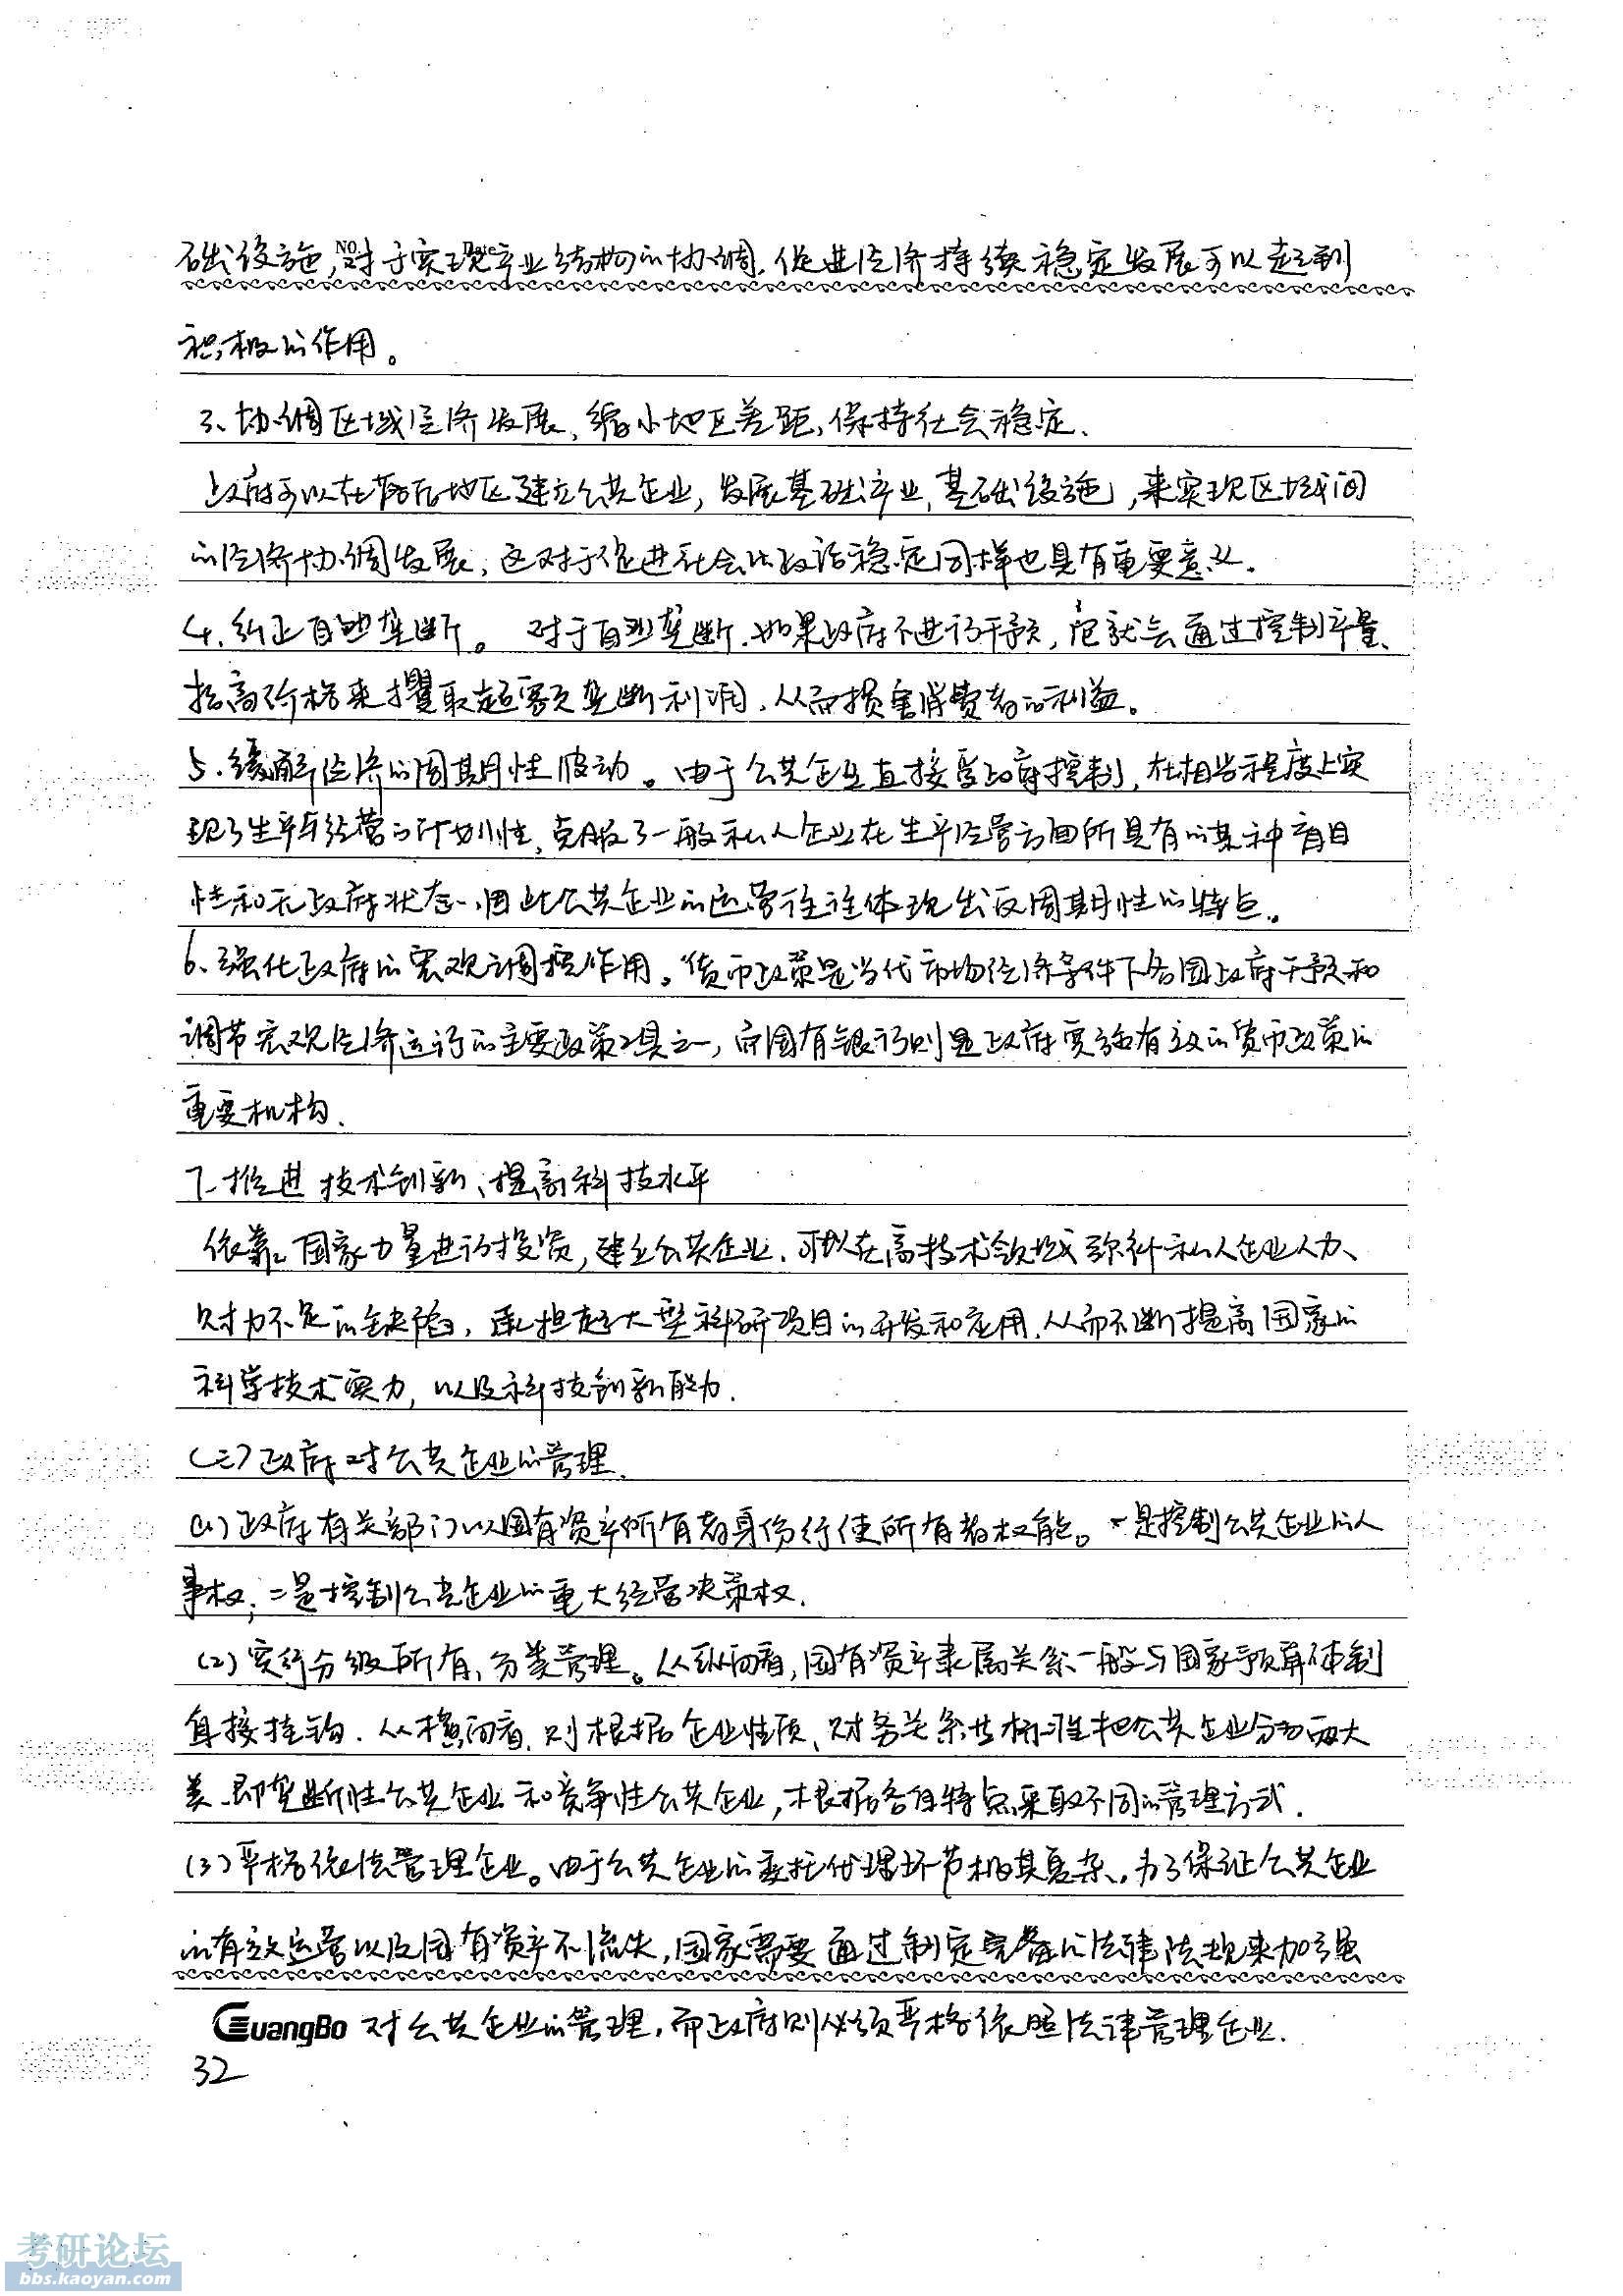 础设施,对于实现产业结构的协调,促进经济持续稳定发展可以起到
NO. Date
积极的作用。
3、协调区域经济发展、缩小地区差距,保持社会稳定.
政府可以在落后地区建立公共企业,发展基础产业,基础设施,来实现区域间
的经济协调发展,这对于促进社会的政治稳定同样也具有重要意义.
4.纠正自然垄断。 对于自然垄断.如果政府不进行干预,它就会通过控制产量、
抬高价格来攫取超额垄断利润,从而损害消费者的利益。
5.缓解经济的周期性波动。由于公共企业直接受政府控制,在相当程度上实
现了生产与经营的计划性,克服了一般私人企业在生产经营方面所具有的某种盲目
性和无政府状态、因此公共企业的运营往往体现出反周期性的特点。
6、强化政府的宏观调控作用。货币政策是当代市场经济条件下各国政府干预和
调节宏观经济运行的主要政策工具之一,而国有银行则是政府实施有效的货币政策的
重要机构.
7.推进技术创新、提高科技水平
依靠国家力量进行投资,建立公共企业.可以在高技术领域弥补私人企业人力、
财力不足的缺陷,承担起大型科研项目的开发和应用,从而不断提高国家的
科学技术实力,以及科技创新能力.
(三)政府对公共企业的管理.
(1)政府有关部门以国有资产所有者身份行使所有者权能。一是控制公共企业的人
事权;二是控制公共企业的重大经营决策权.
(2)实行分级所有、分类管理。从纵向看,国有资产隶属关系一般与国家预算体制
直接挂钩.从横向看,则根据企业性质、财务关系等标准把公共企业分为两大
类.即垄断性公共企业和竞争性公共企业,根据各自特点采取不同的管理方式.
(3)严格依法管理企业。由于公共企业的委托代理环节极其复杂,为了保证公共企业
的有效运营以及国有资产不流失,国家需要通过制定完备的法律法规来加强
GuangBo 对公共企业的管理,而政府则必须严格依照法律管理企业.
32
考研论坛
bbs.kaoyan.com